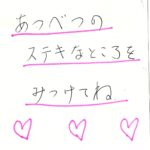 あつべつの
ステキなところを
みつけてね
♡ ♡ ♡